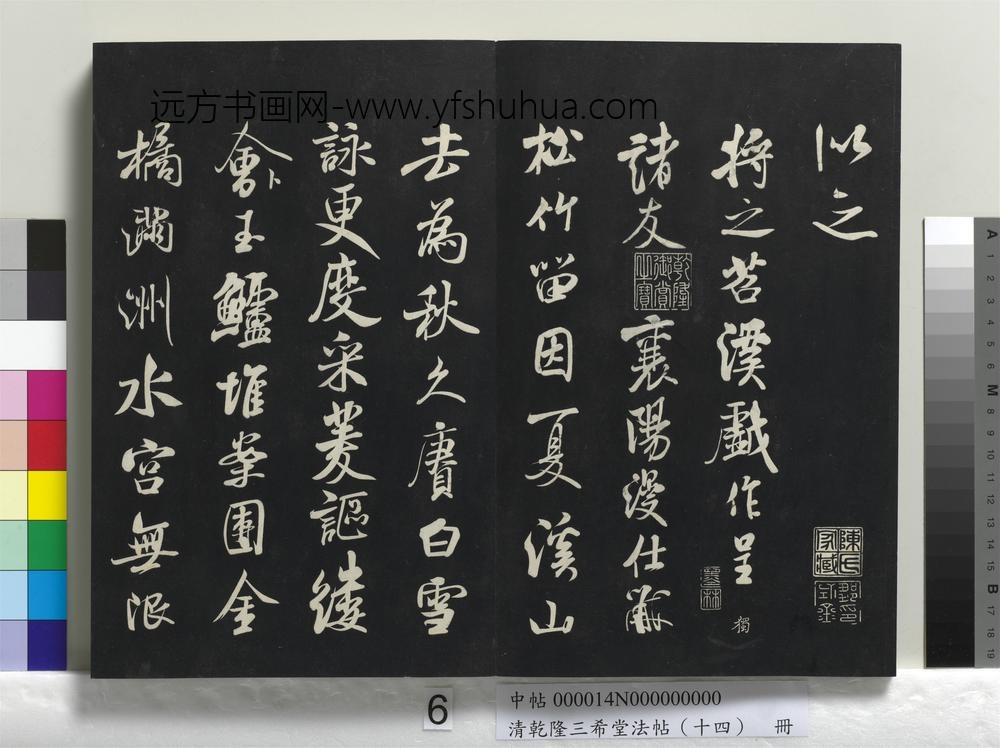 远方书画网-www.yfshuhua.com
以之
将之苕溪戯作呈
諸友
襄陽漫仕黻
松竹留因夏溪山
去為秋久賡白雪
詠更度采菱謳縷
會玉鱸堆案團金
橘滿洲水宮無限
獨
乾隆御賞之寶
墨林
陳氏家藏
A 1 2 3 4 5 6 M 8 9 10 11 12 13 14 15 B 17 18 19
6
中帖 000014N000000000
清乾隆三希堂法帖（十四） 冊